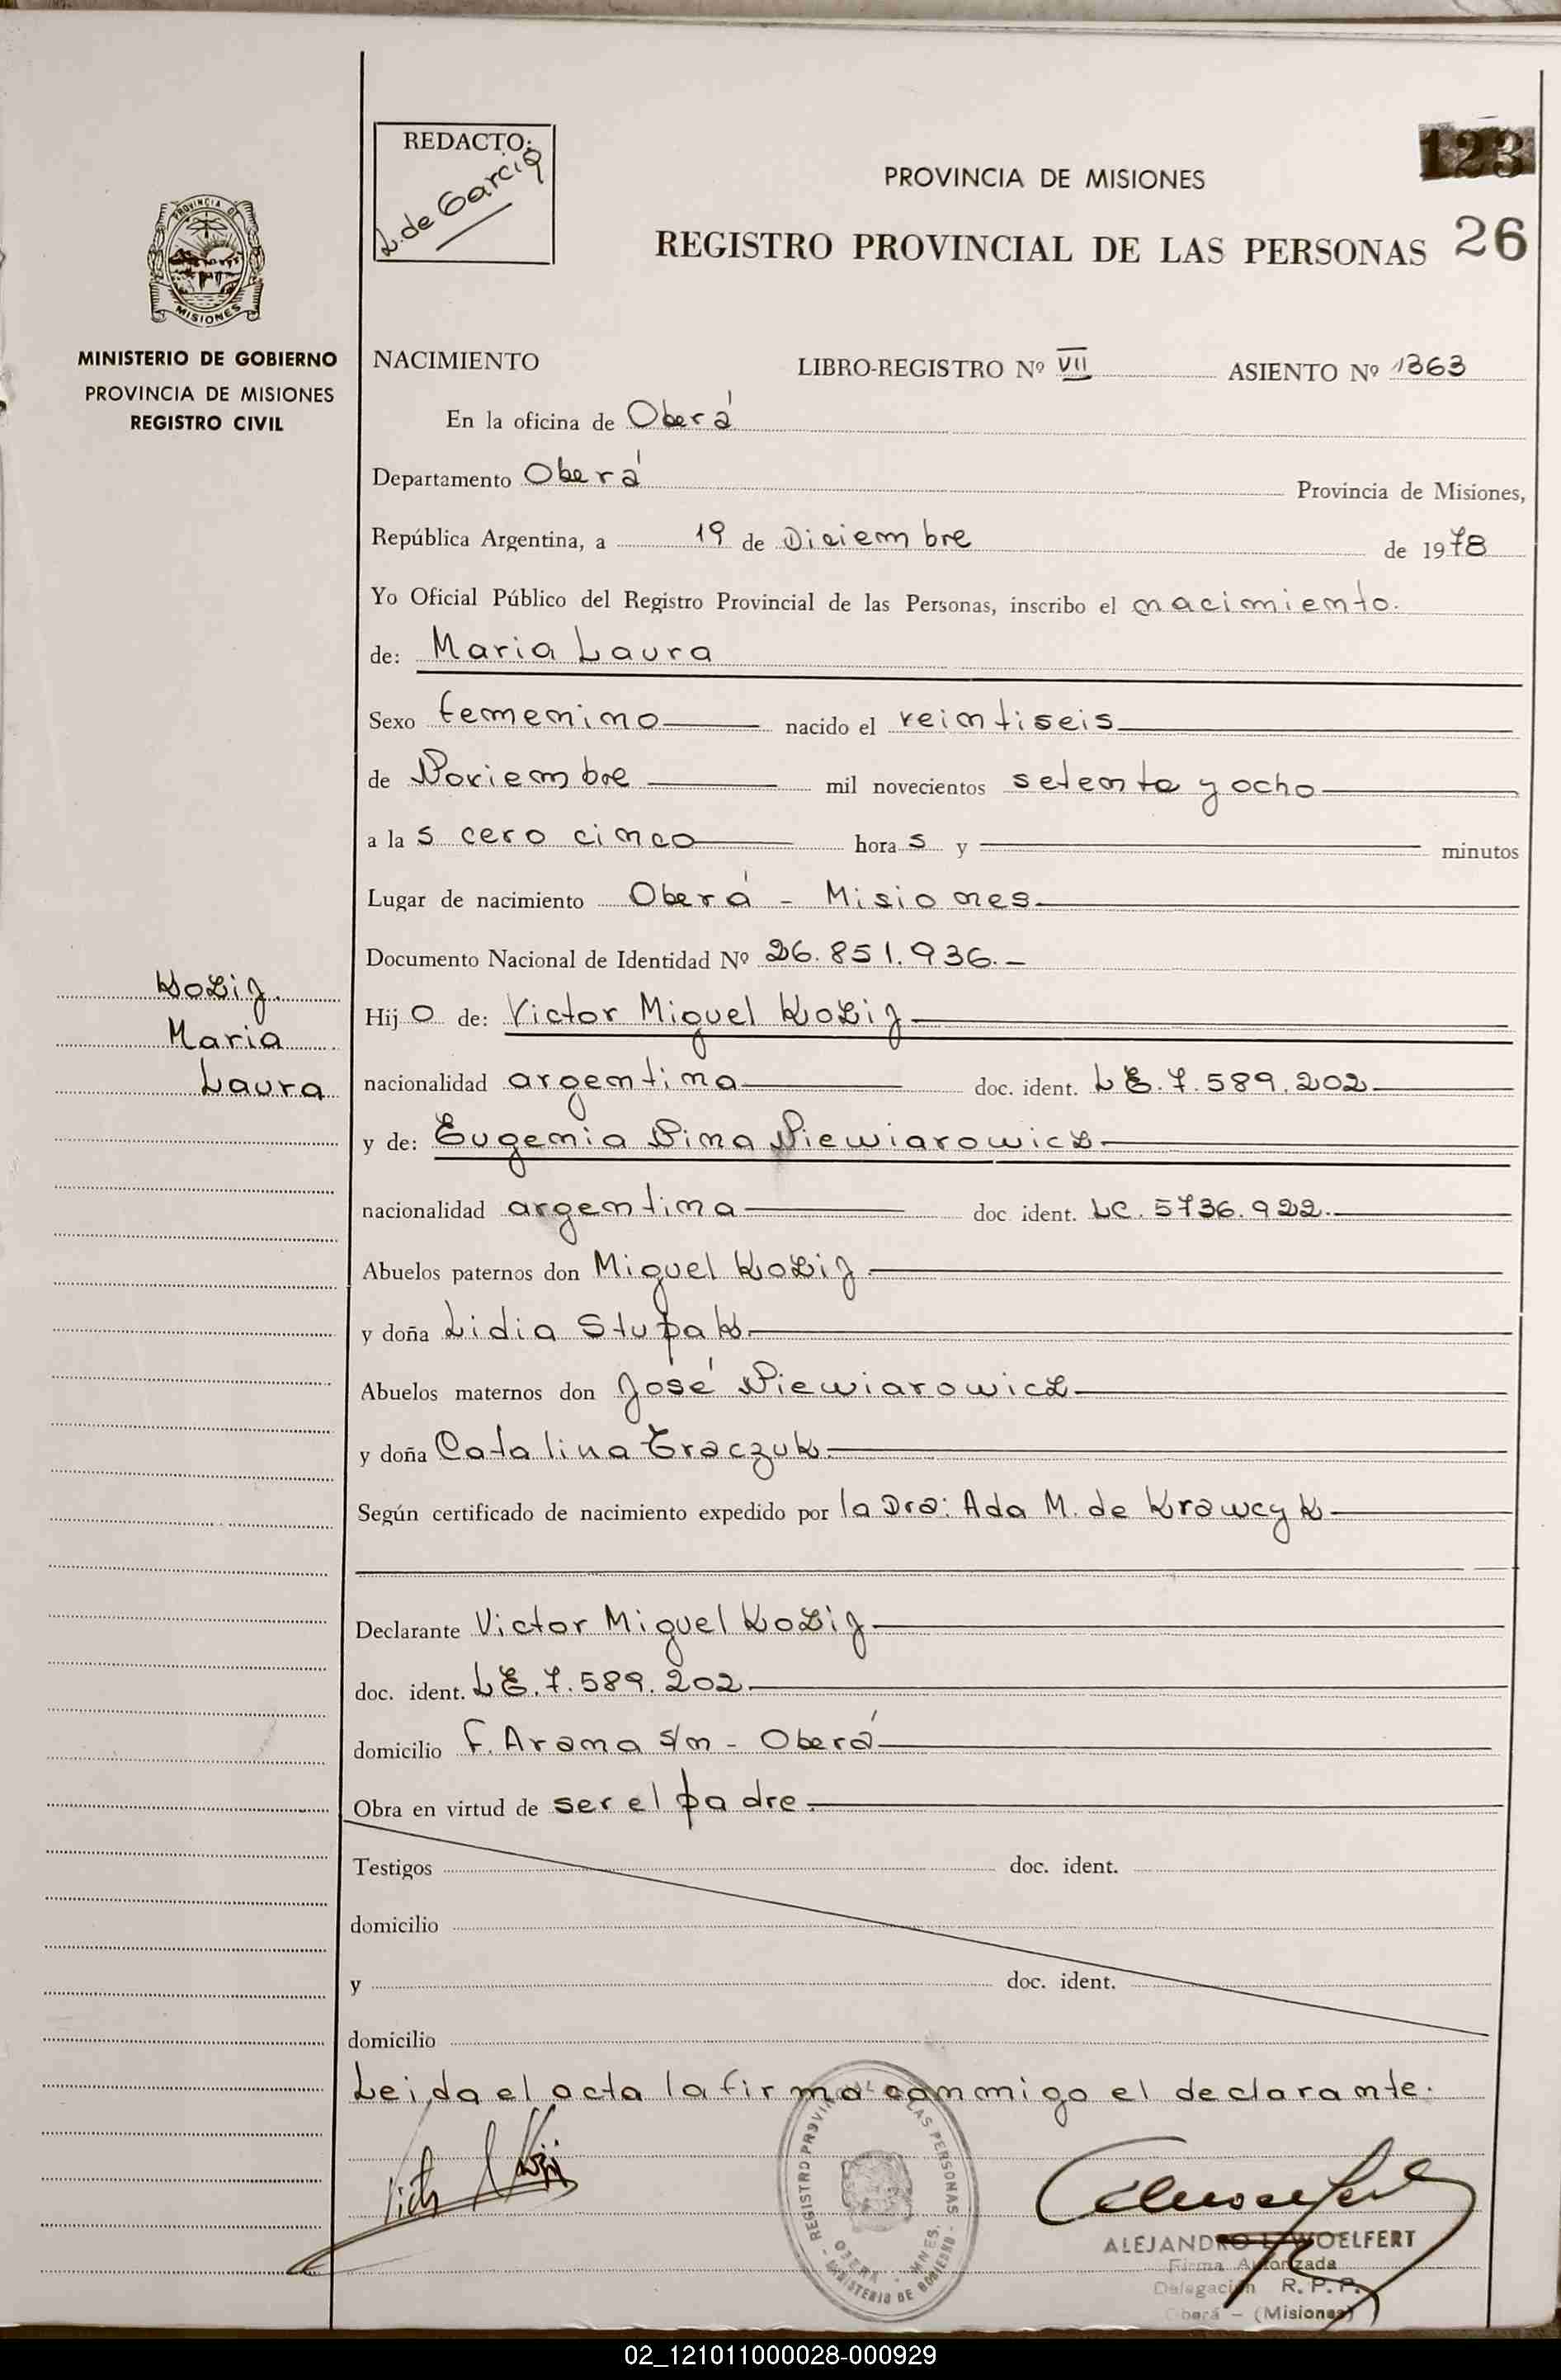 REDACTO:
L. de Garcia
123
PROVINCIA DE MISIONES
REGISTRO PROVINCIAL DE LAS PERSONAS 26
PROVINCIA DE
MISIONES
MINISTERIO DE GOBIERNO
PROVINCIA DE MISIONES
REGISTRO CIVIL
NACIMIENTO LIBRO-REGISTRO Nº VII ASIENTO Nº 1363
En la oficina de Oberá
Departamento Oberá Provincia de Misiones,
República Argentina, a 19 de Diciembre de 1978
Yo Oficial Público del Registro Provincial de las Personas, inscribo el nacimiento.
de: Maria Laura
Sexo femenino nacido el veintiseis
de Noviembre mil novecientos setenta y ocho
a las cero cinco horas y minutos
Lugar de nacimiento Oberá - Misiones
Documento Nacional de Identidad Nº 26.851.936.-
Kozij
Maria
Laura
Hijo de: Victor Miguel Kozij
nacionalidad argentina doc. ident. LE. 7.589.202
y de: Eugenia Nina Niewiarowicz
nacionalidad argentina doc. ident. LC. 5736.922.
Abuelos paternos don Miguel Kozij
y doña Lidia Stupak
Abuelos maternos don José Niewiarowicz
y doña Catalina Traczuk
Según certificado de nacimiento expedido por la Dra: Ada M. de Krawcyk
Declarante Victor Miguel Kozij
doc. ident. LE. 7.589.202
domicilio F. Arana s/n - Oberá
Obra en virtud de ser el padre.
Testigos doc. ident.
domicilio
y doc. ident.
domicilio
Leida el acta la firma conmigo el declarante.
REGISTRO PROVINCIAL LAS PERSONAS
OBERA - MNES.
MINISTERIO DE GOBIERNO
ALEJANDRO L. WOELFERT
Firma Autorizada
Delegación R. P. P.
Oberá - (Misiones)
02_121011000028-000929